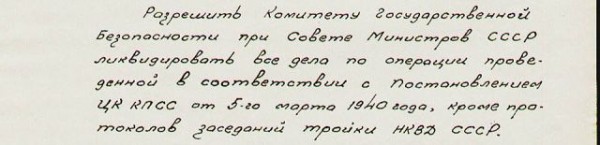 Разрешить Комитету Государственной
Безопасности при Совете Министров СССР
ликвидировать все дела по операции прове-
денной в соответствии с Постановлением
ЦК КПСС от 5-го марта 1940 года, кроме про-
токолов заседаний тройки НКВД СССР.